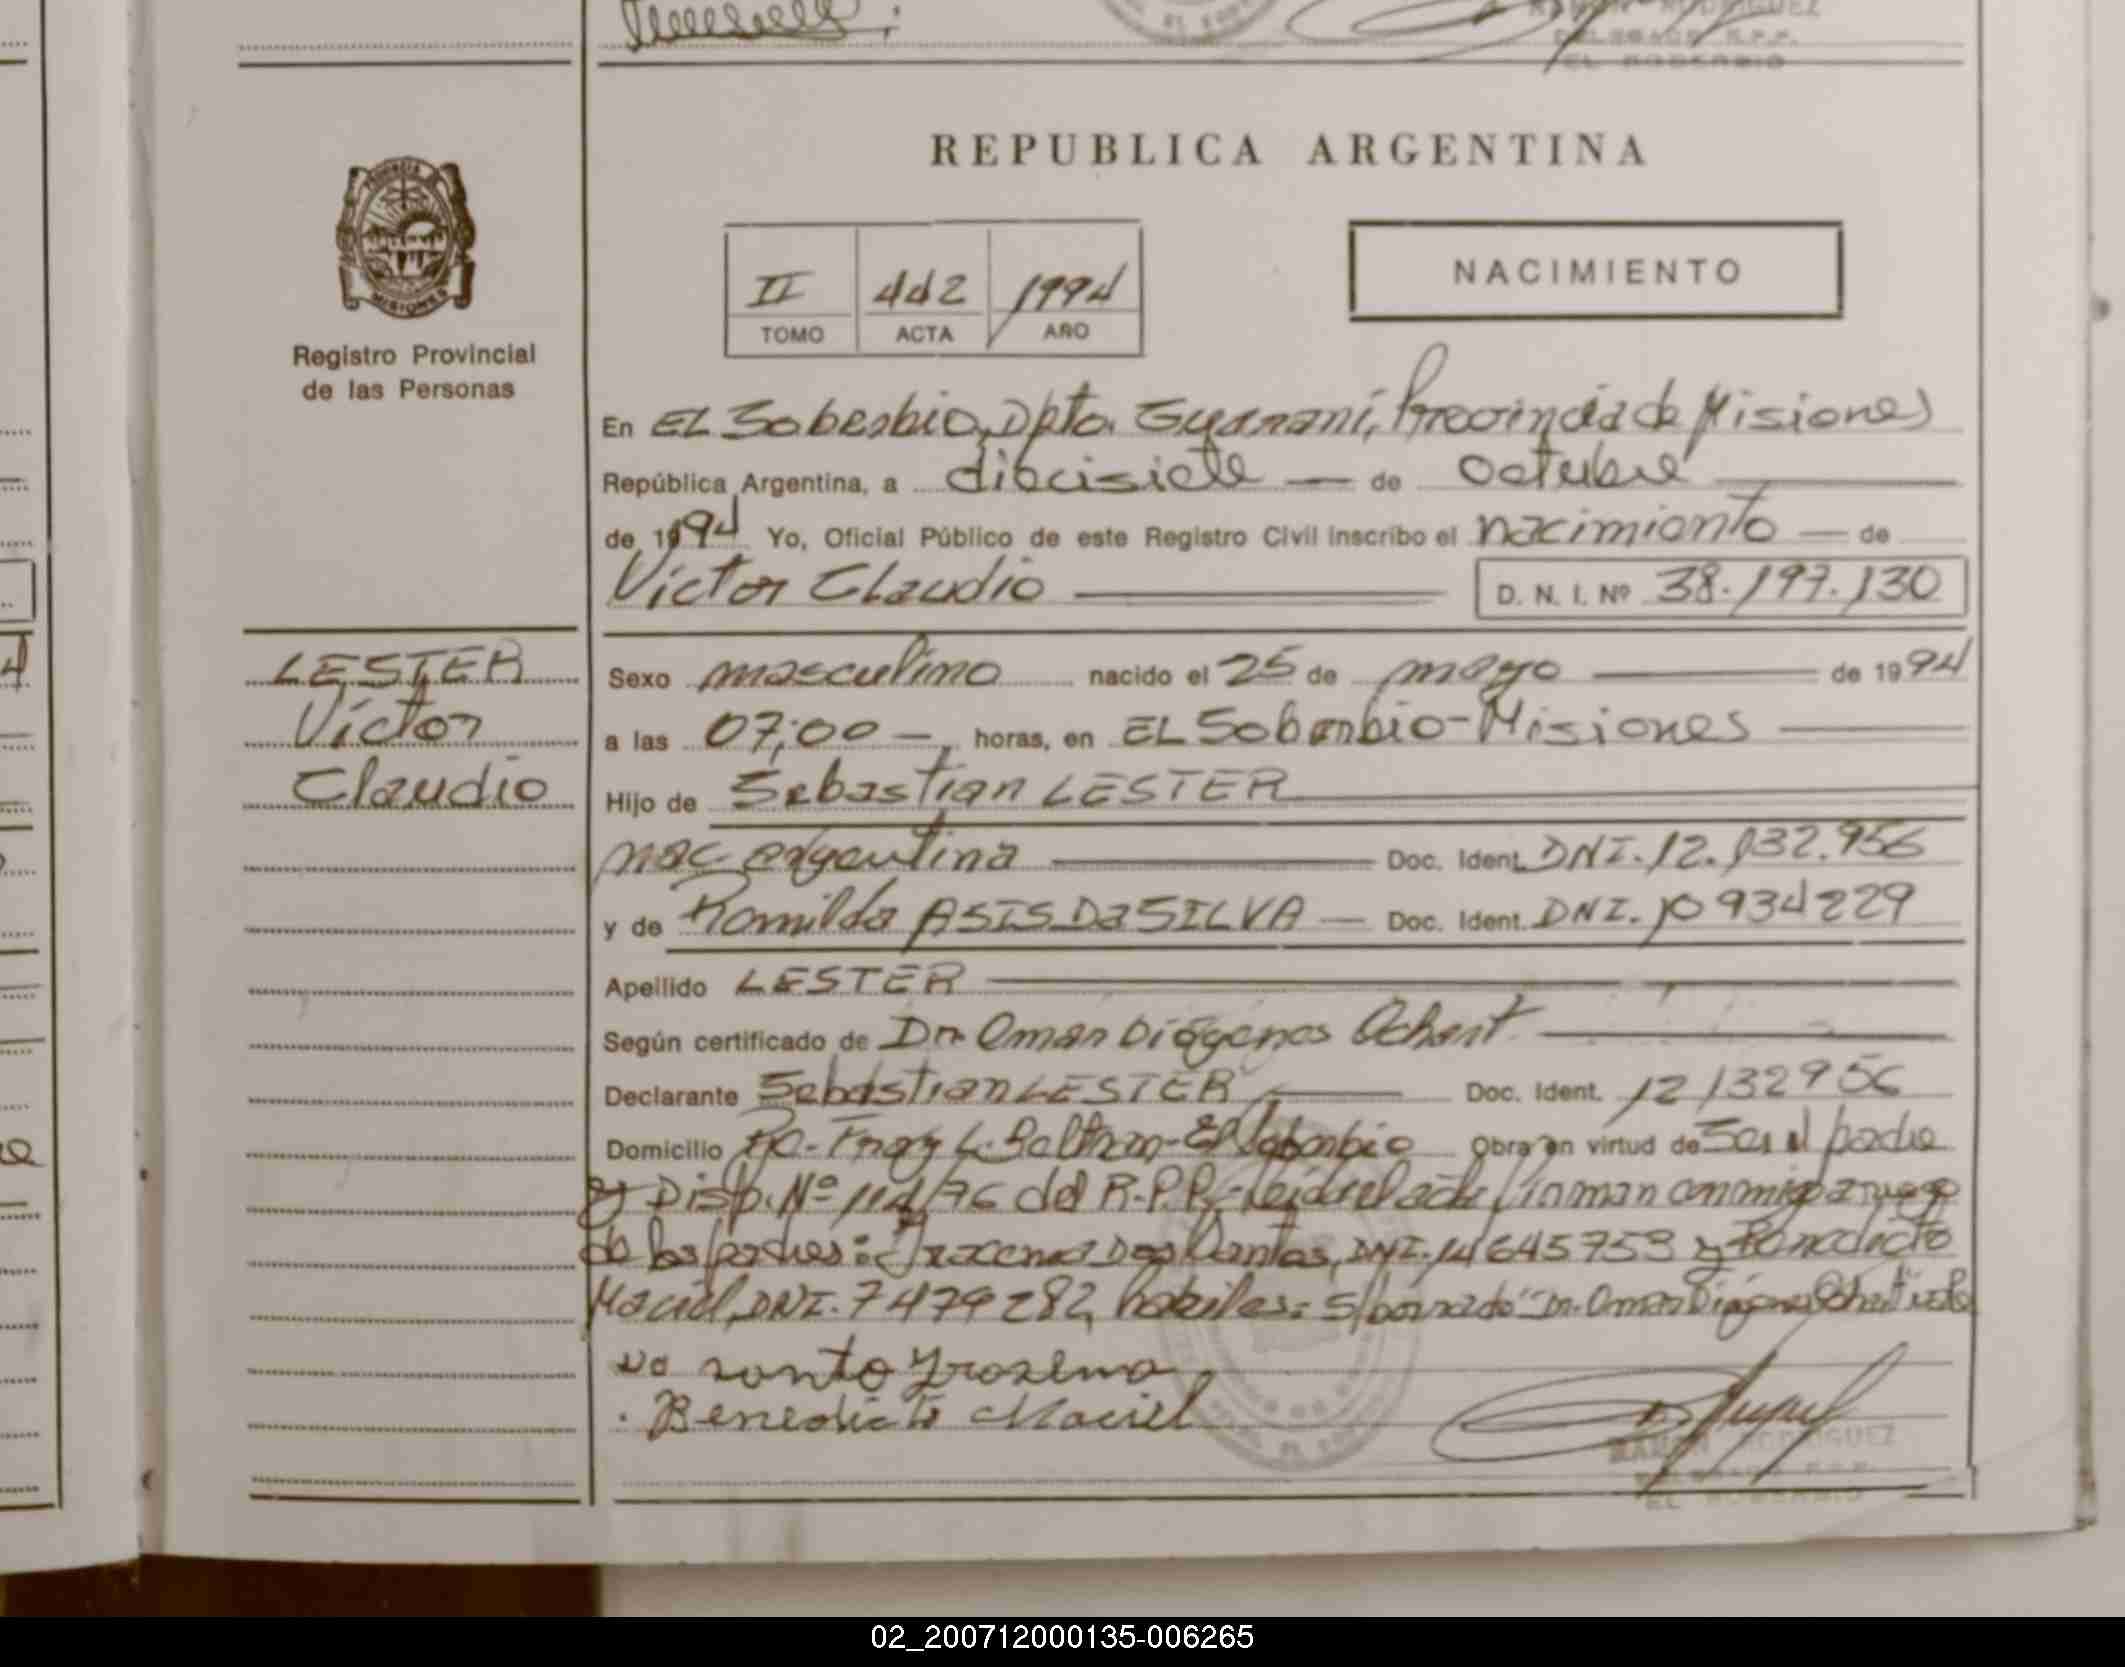 REPUBLICA ARGENTINA
II 442 1994
TOMO ACTA AÑO
NACIMIENTO
PROVINCIA DE MISIONES
Registro Provincial
de las Personas
En EL Soberbio, Dpto. Guaraní, Provincia de Misiones
República Argentina, a diecisiete — de octubre
de 1994 Yo, Oficial Público de este Registro Civil inscribo el nacimiento — de
Víctor Claudio D. N. I. Nº 38.197.130
LESTER
Víctor
Claudio
Sexo masculino nacido el 25 de mayo de 1994
a las 07,00 — horas, en EL Soberbio - Misiones
Hijo de Sebastian LESTER
nac argentina Doc. Ident. DNI. 12.132.956
y de Romilda ASIS Da SILVA — Doc. Ident. DNI. 10934229
Apellido LESTER
Según certificado de Dr. Omar Diógenes
Declarante Sebastian LESTER Doc. Ident. 12132956
Domicilio Fray L. Beltran - El Soberbio Obra en virtud de Ser el padre
y Disp. Nº 114/76 del R.P.P. - Leída el acta firman conmigo a ruego
de los padres: Dos Santos, DNI. 14645753 y Benedicto
Maciel, DNI. 7479282, habiles: S/borrado "Dr. Omar Diógenes
Benedicto Maciel
RAMON RODRIGUEZ
EL SOBERBIO
02_200712000135-006265